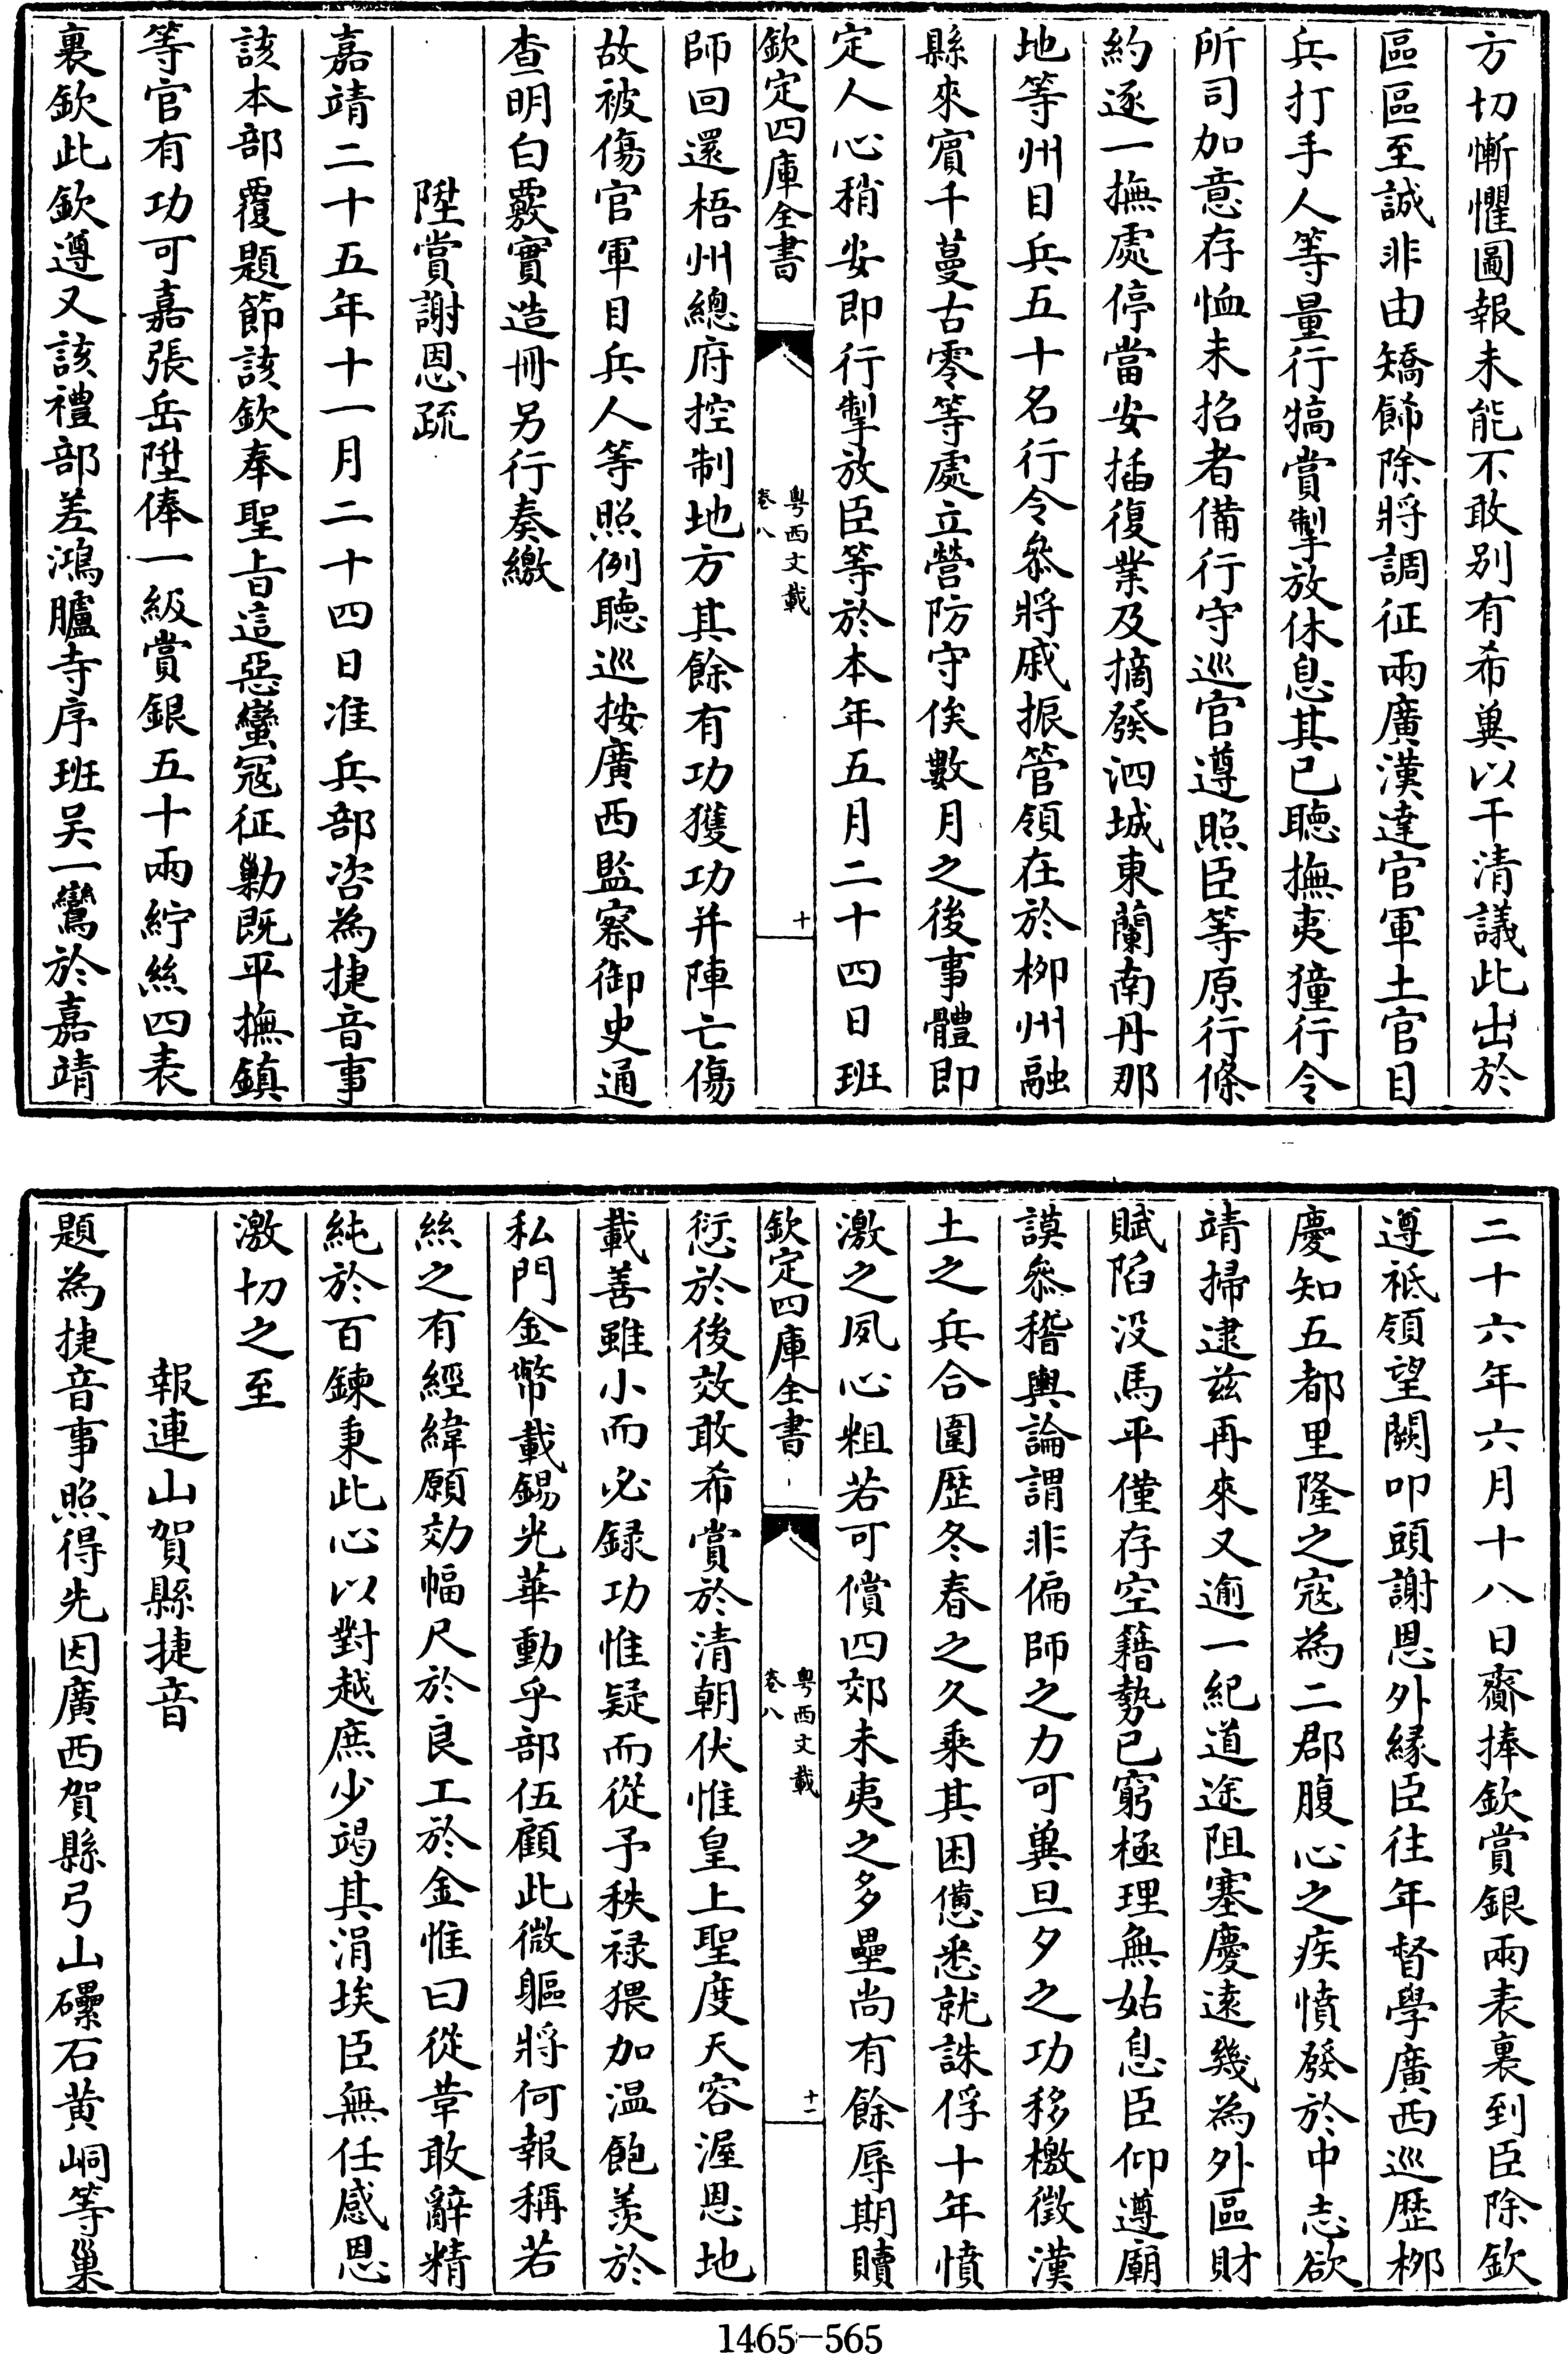 方切慚懼圖報未能不敢别有希兾以干清議此出於
區區至誠非由矯飾除將調征兩廣漢達官軍土官目
兵打手人等量行犒賞掣放休息其已聽撫夷獞行令
所司加意存恤未招者備行守巡官遵照臣等原行條
約逐一撫處停當安插復業及摘發泗城東蘭南丹那
地等州目兵五十名行令叅將戚振管領在於栁州融
縣來賓千蔓古零等處立營防守俟數月之後事體即
定人心稍安即行掣放臣等於本年五月二十四日班
欽定四庫全書
粤西文載
卷八
十
師回還梧州總府控制地方其餘有功獲功并陣亡傷
故被傷官軍目兵人等照例聽巡按廣西監察御史通
查明白覈實造冊另行奏繳
陞賞謝恩疏
嘉靖二十五年十一月二十四日准兵部咨為捷音事
該本部覆題節該欽奉聖旨這惡蠻冦征勦既平撫鎮
等官有功可嘉張岳陞俸一級賞銀五十兩紵絲四表
裏欽此欽遵又該禮部差鴻臚寺序班吴一鸞於嘉靖
二十六年六月十八日齎捧欽賞銀兩表裏到臣除欽
遵祗領望闕叩頭謝恩外緣臣往年督學廣西巡歷栁
慶知五都里隆之寇為二郡腹心之疾憤發於中志欲
靖掃逮兹再來又逾一紀道途阻塞慶遠幾為外區財
賦陷没馬平僅存空籍勢已窮極理無姑息臣仰遵廟
謨叅稽輿論謂非偏師之力可兾旦夕之功移檄徵漢
土之兵合圍歷冬春之久乘其困憊悉就誅俘十年憤
激之夙心粗若可償四郊未夷之多壘尚有餘辱期贖
欽定四庫全書
粤西文載
卷八
十一
愆於後效敢希賞於清朝伏惟皇上聖度天容渥恩地
載善雖小而必録功惟疑而從予秩禄猥加温飽羨於
私門金幣載錫光華動乎部伍顧此微軀將何報稱若
絲之有經緯願効幅尺於良工於金惟曰從革敢辭精
純於百鍊秉此心以對越庶少竭其涓埃臣無任感恩
激切之至
報連山賀縣捷音
題為捷音事照得先因廣西賀縣弓山礨石黄峒等巢
1465-565